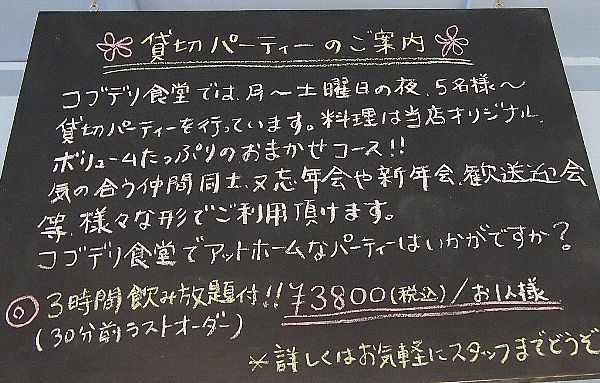 貸切パーティーのご案内
コブデリ食堂では、月〜土曜日の夜、5名様〜
貸切パーティーを行っています。料理は当店オリジナル、
ボリュームたっぷりのおまかせコース!!
気の合う仲間同士、又忘年会や新年会、歓送迎会
等、様々な形でご利用頂けます。
コブデリ食堂でアットホームなパーティーはいかがですか?
◎3時間飲み放題付!! ¥3800(税込)/お1人様
(30分前ラストオーダー)
*詳しくはお気軽にスタッフまでどうぞ